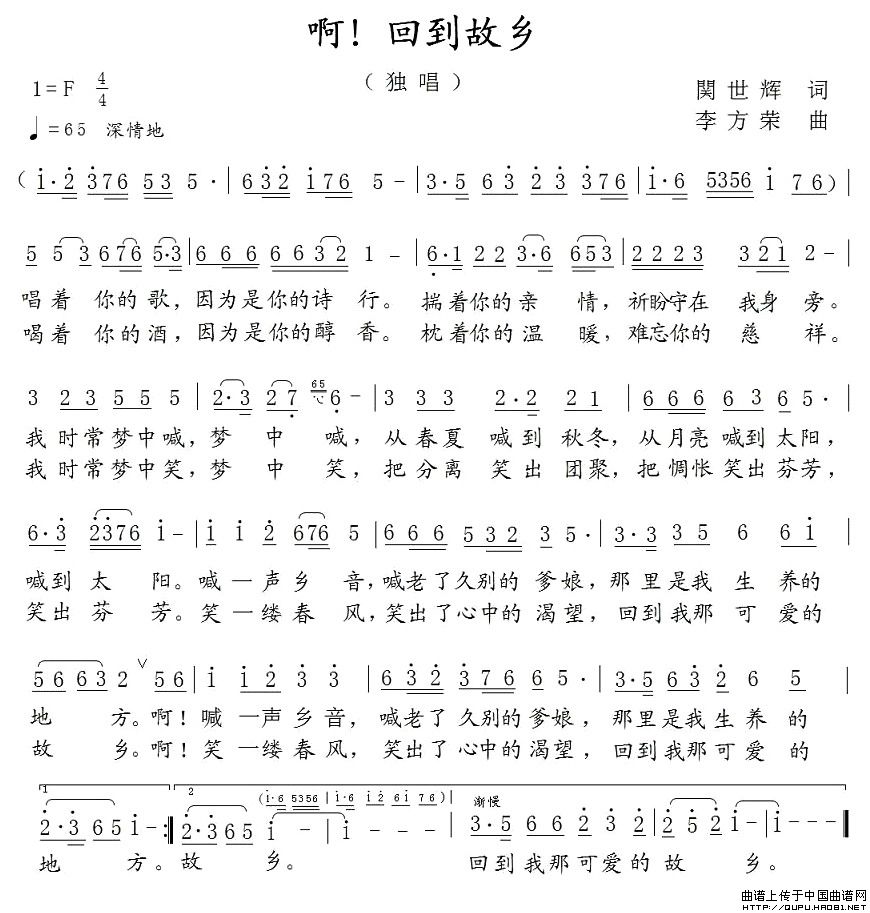 啊！回到故乡
（独唱）
1=F 4/4
世辉 词
♩=65 深情地
李方荣 曲
（1·2 376 53 5·| 632 176 5 -| 3·5 63 23 376| 1·6 5356 1 76）|
5 53 676 5·3| 666 6632 1 -| 6·1 22 3·6 653| 2223 321 2 -|
唱着 你的歌，因为是你的诗 行。 揣着你的亲 情，祈盼守在 我身 旁。
喝着 你的酒，因为是你的醇 香。 枕着你的温 暖，难忘你的 慈 祥。
3 23 55 5| 2·3 27 65 6 -| 3 33 2·2 21| 666 63 6 5·|
我时常梦中喊，梦 中 喊，从春夏 喊到 秋冬，从月亮喊到太阳，
我时常梦中笑，梦 中 笑，把分离 笑出 团聚，把惆怅笑出芬芳，
6·3 2376 1 -| 1 1 2 676 5| 666 532 3 5·| 3·3 35 6 61|
喊到 太 阳。喊一声乡 音，喊老了久别的 爹娘，那里是我 生 养的
笑出 芬 芳。笑一缕春 风，笑出了心中的 渴望，回到我那 可 爱的
56 63 2 V 56| 1 12 3 3| 632 376 6 5·| 3·5 632 6 5|
地 方。啊！喊一声乡音，喊老了久别的爹娘，那里是我生养的
故 乡。啊！笑一缕春风，笑出了心中的渴望，回到我那可爱的
1 2 （1·6 5356| 1·6 12 61 76）| 渐慢
2·3 65 1 -:| 2·3 65 1 -| 1 -| - - - -| 3·5 66 2 3| 2 52 1 -| 1 - - -|
地 方。故 乡。 回到我那可爱的故 乡。
曲谱上传于中国曲谱网
HTTP://QUPU.HAO81.NET